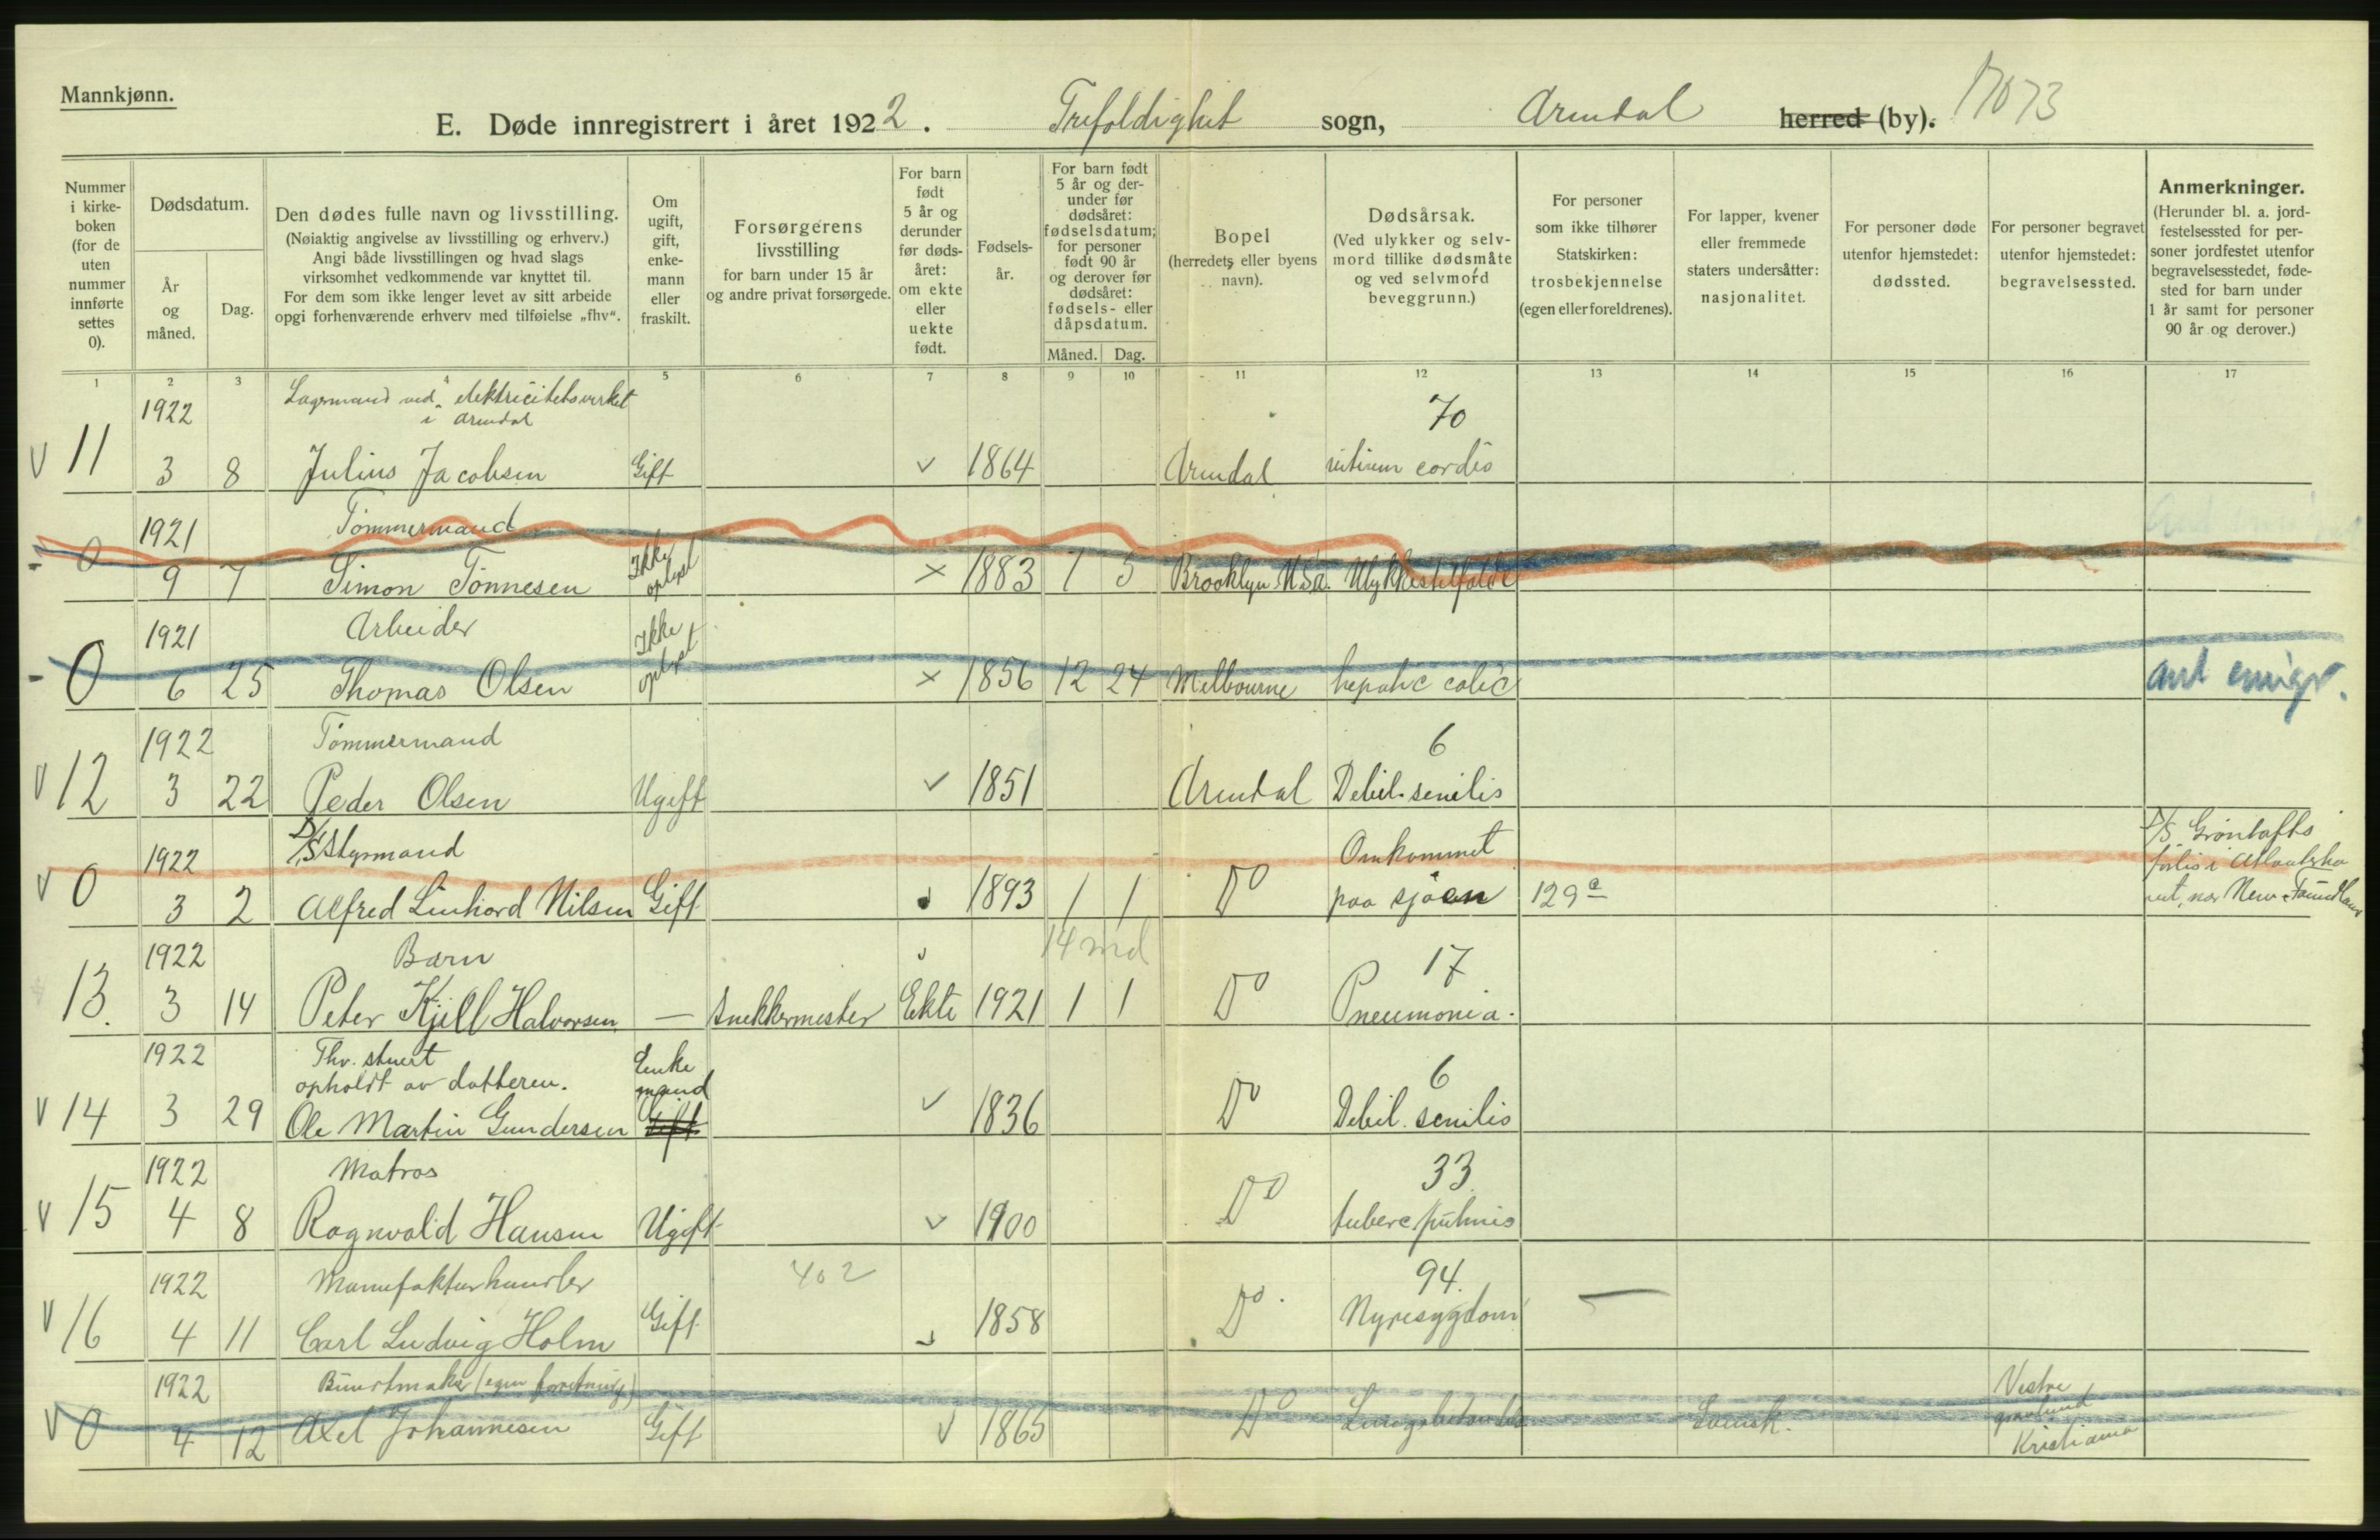 Mannkjønn.
E. Døde innregistrert i året 1922. Trefoldighet sogn, Arendal herred (by). 17073
Nummer i kirkeboken (for de uten nummer innførte settes 0).
Dødsdatum.
År og måned.
Dag.
Den dødes fulle navn og livsstilling.
(Nøiaktig angivelse av livsstilling og erhverv.)
Angi både livsstillingen og hvad slags
virksomhet vedkommende var knyttet til.
For dem som ikke lenger levet av sitt arbeide
opgi forhenværende erhverv med tilføielse „fhv“.
Om ugift, gift, enkemann eller fraskilt.
Forsørgerens livsstilling
for barn under 15 år
og andre privat forsørgede.
For barn født 5 år og derunder før dødsåret: om ekte eller uekte født.
Fødselsår.
For barn født 5 år og derunder før dødsåret: fødselsdatum; for personer født 90 år og derover før dødsåret: fødsels- eller dåpsdatum.
Måned. Dag.
Bopel
(herredets eller byens navn).
Dødsårsak.
(Ved ulykker og selvmord tillike dødsmåte og ved selvmord beveggrunn.)
For personer som ikke tilhører Statskirken: trosbekjennelse (egen eller foreldrenes).
For lapper, kvener eller fremmede staters undersåtter: nasjonalitet.
For personer døde utenfor hjemstedet: dødssted.
For personer begravet utenfor hjemstedet: begravelsessted.
Anmerkninger.
(Herunder bl. a. jordfestelsessted for personer jordfestet utenfor begravelsesstedet, fødested for barn under 1 år samt for personer 90 år og derover.)
1 2 3 4 5 6 7 8 9 10 11 12 13 14 15 16 17
1922 Lagermand ved elektricitetsverket 70
i Arendal
V 11 3 8 Julius Jacobsen Gift 1864 Arendal vitium cordis
1921 Tømmermand
0 9 7 Simon Tønnesen Ikke oplyst × 1883 1 5 Brooklyn U.S.a. Ulykkestilfælde
1921 Arbeider
0 6 25 Thomas Olsen Ikke oplyst × 1856 12 24 Melbourne hepatic colic ant emigr.
1922 Tømmermand 6
V 12 3 22 Peder Olsen Ugift 1851 Arendal Debil. senilis
1922 D/S Styrmand Omkommet D/S Grøntofts
forlis i Atlanterha
V 0 3 2 Alfred Linhard Nilsen Gift 1893 1 1 Do paa sjøen 129 a vet, nær New-Foundland
14 md
1922 Barn 17
13. 3 14 Peter Kjell Halvorsen — Snekkermester Ekte 1921 1 1 Do Pneumonia.
1922 Fhv. stuert Enke 6
opholdt av datteren. mand
V 14 3 29 Ole Martin Gundersen Gift 1836 Do Debil. senilis
1922 Matros 33
V 15 4 8 Ragnvald Hansen Ugift 1900 Do tuberc pulmis
1922 Manufakturhandler 402 94.
V 16 4 11 Carl Ludvig Holm Gift 1858 Do. Nyresygdom —
1922 Buntmaker (egen forretning) Vestre
gravlund
V 0 4 12 Axel Johannesen Gift 1865 Do Svensk. Kristiania